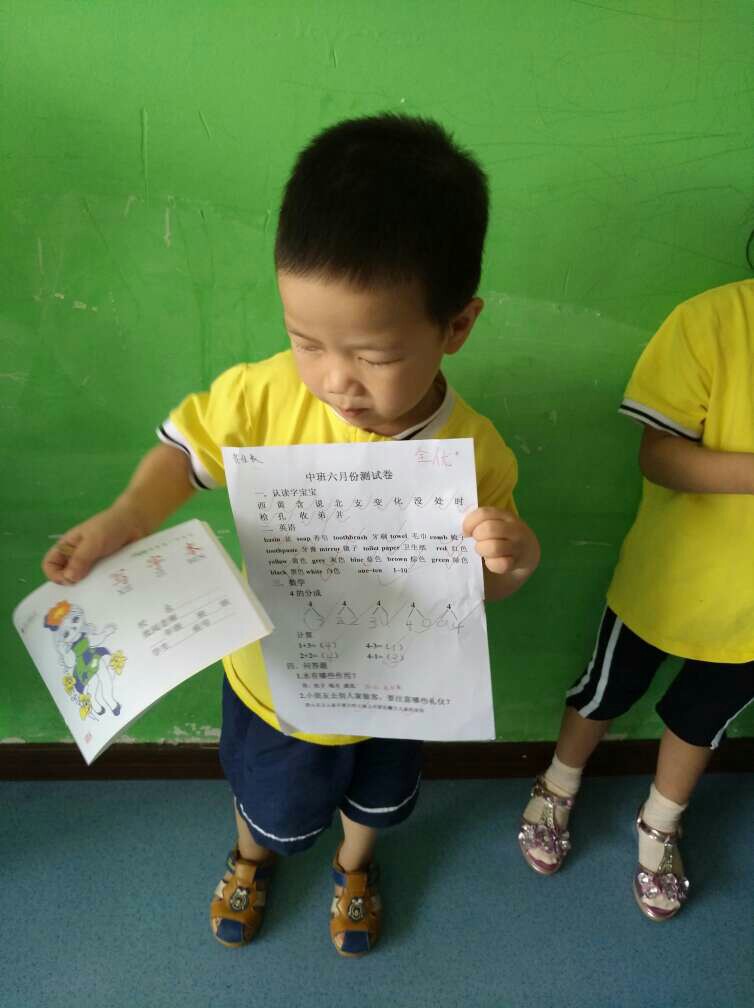 全优
中班六月份测试卷
一、认读字宝宝
西 黄 含 说 北 支 变 化 没 处 时
检 孔 收 弟 井
二、英语
basin 盆 soap 香皂 toothbrush 牙刷 towel 毛巾 comb 梳子
toothpaste 牙膏 mirror 镜子 toilet paper 卫生纸 red 红色
yellow 黄色 grey 灰色 blue 蓝色 brown 棕色 green 绿色
black 黑色 white 白色 one-ten 1-10
三、数学
4 的分成
4 4 4 4 4
1 3 2 2 3 1 4 0 0 4
计算
1+3=(4) 4-3=(1)
2+2=(4) 4-1=(3)
四、问答题
1.水有哪些作用?
2.小朋友去别人家做客，要注意哪些礼仪?
写 字 本